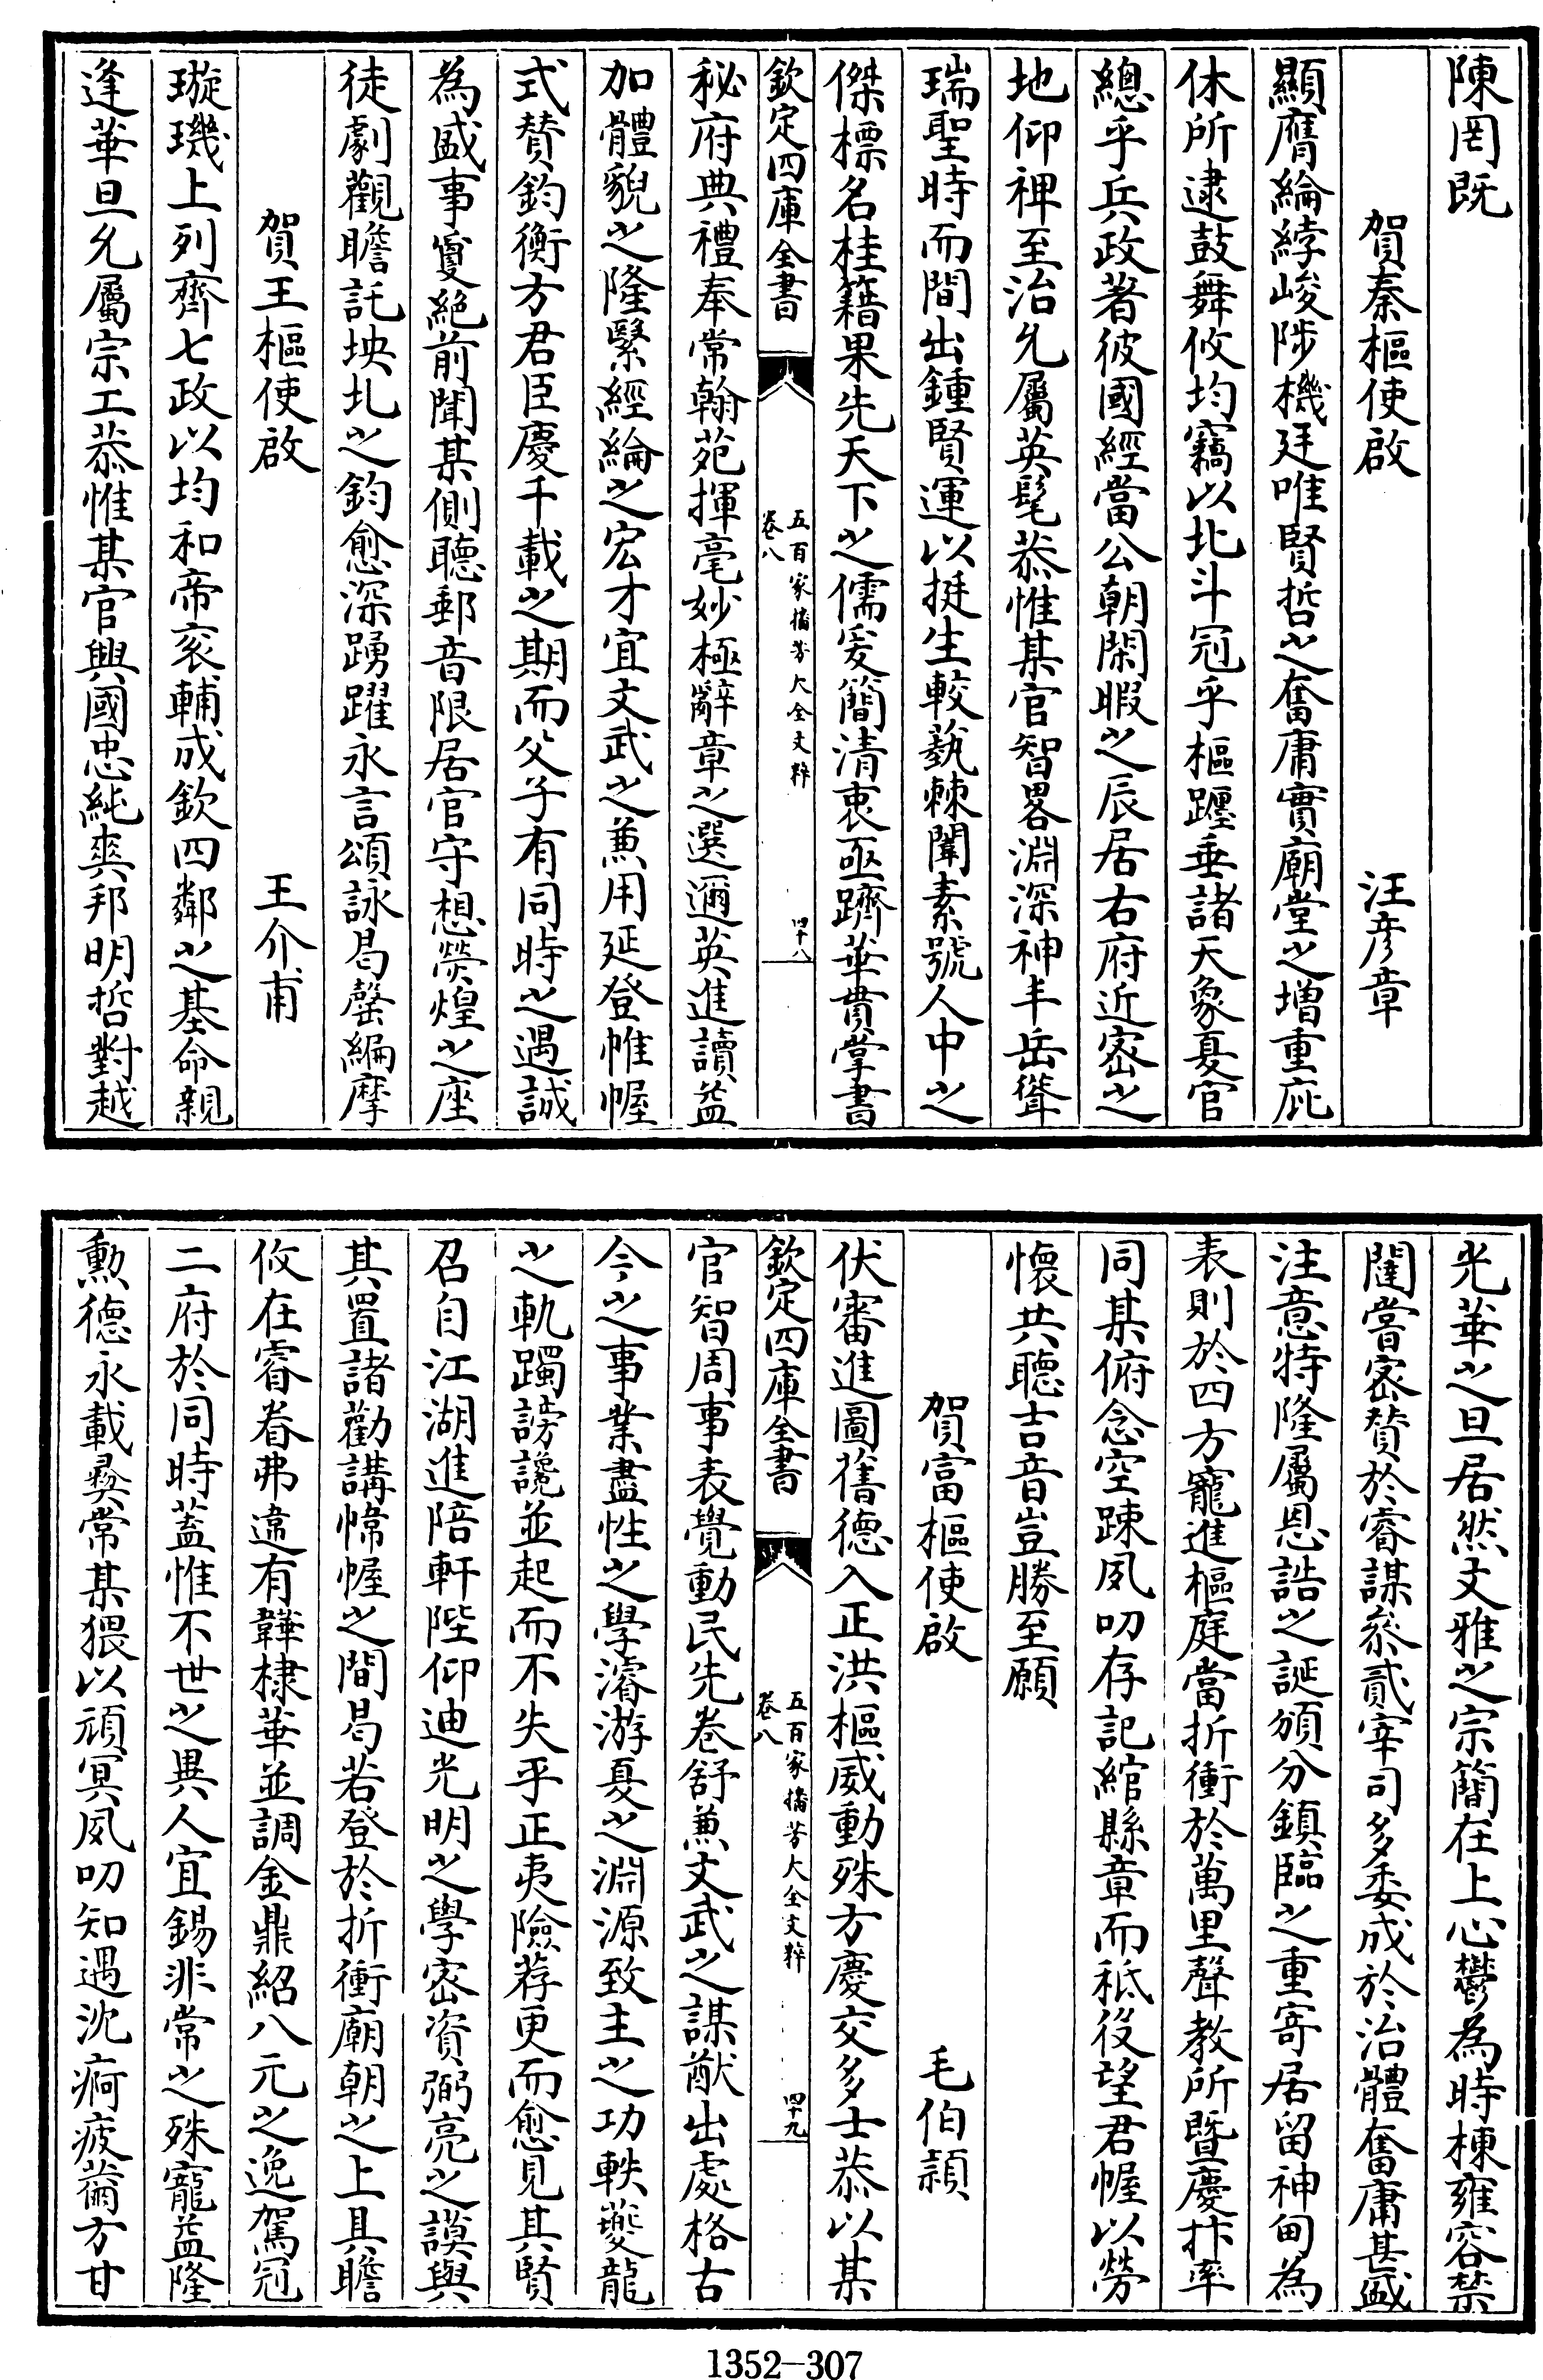 陳罔既
賀秦樞使啟 汪彦章
顯膺綸綍峻陟機廷唯賢哲之奮庸實廟堂之増重庇
休所逮鼓舞攸均竊以北斗冠乎樞躔垂諸天象夏官
總乎兵政著彼國經當公朝閑暇之辰居右府近密之
地仰禆至治允屬英髦恭惟某官智畧淵深神丰岳聳
瑞聖時而間出鍾賢運以挺生較藝棘闈素號人中之
傑標名桂籍果先天下之儒爰簡清衷亟躋華貫掌書
欽定四庫全書
五百家播芳大全文粹
卷八
四十八
秘府典禮奉常翰苑揮毫妙極辭章之選邇英進讀益
加體貌之隆緊經綸之宏才宜文武之兼用延登帷幄
式賛鈞衡方君臣慶千載之期而父子有同時之遇誠
為盛事夐絶前聞某側聽郵音限居官守想熒煌之座
徒劇觀瞻託坱圠之鈞愈深踴躍永言頌詠曷罄編摩
賀王樞使啟 王介甫
璇璣上列齊七政以均和帝衮輔成欽四鄰之基命親
逢華旦允屬宗工恭惟某官興國忠純爽邦明哲對越
光華之旦居然文雅之宗簡在上心鬱為時棟雍容禁
闥嘗密賛於睿謀叅貳宰司多委成於治體奮庸甚盛
注意特隆屬恩誥之誕頒分鎮臨之重寄居留神甸為
表則於四方寵進樞庭當折衝於萬里聲教所暨慶抃率
同某俯念空踈夙叨存記綰縣章而秪役望君幄以勞
懐共聽吉音豈勝至願
賀富樞使啟 毛伯頴
伏審進圖舊德入正洪樞威動殊方慶交多士恭以某
欽定四庫全書
五百家播芳大全文粹
卷八
四十九
官智周事表覺動民先卷舒兼文武之謀猷出處格古
今之事業盡性之學濬游夏之淵源致主之功軼夔龍
之軌躅謗讒並起而不失乎正夷險荐更而愈見其賢
召自江湖進陪軒陛仰迪光明之學密資弼亮之謨與
其置諸勸講帷幄之間曷若登於折衝廟朝之上具瞻
攸在睿眷弗違有韡棣華並調金鼎紹八元之逸駕冠
二府於同時葢惟不世之異人宜錫非常之殊寵益隆
勲德永載彛常某猥以頑冥夙叨知遇沈痾疲薾方甘
1352-307